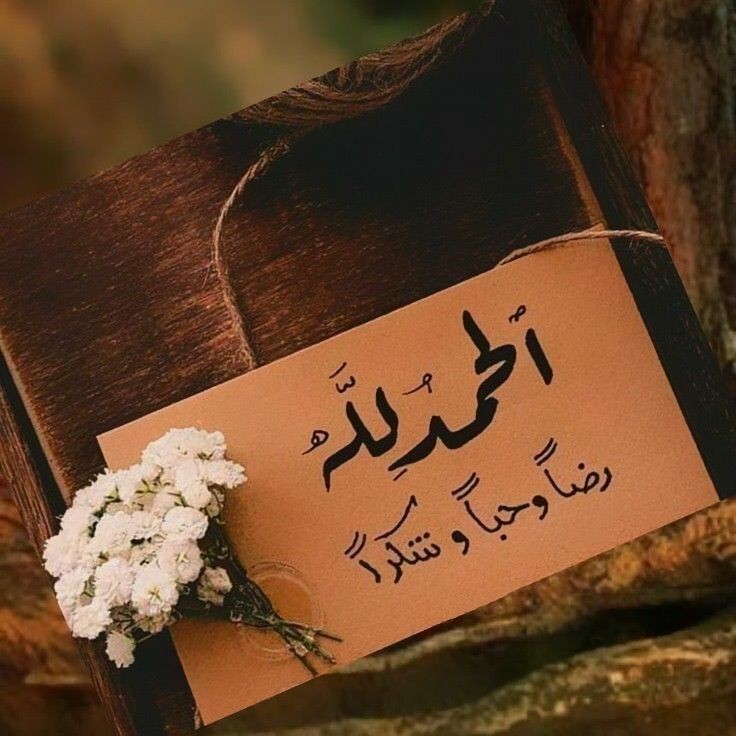 الحمدُ لِلَّه
رضاً وحباً وشكراً